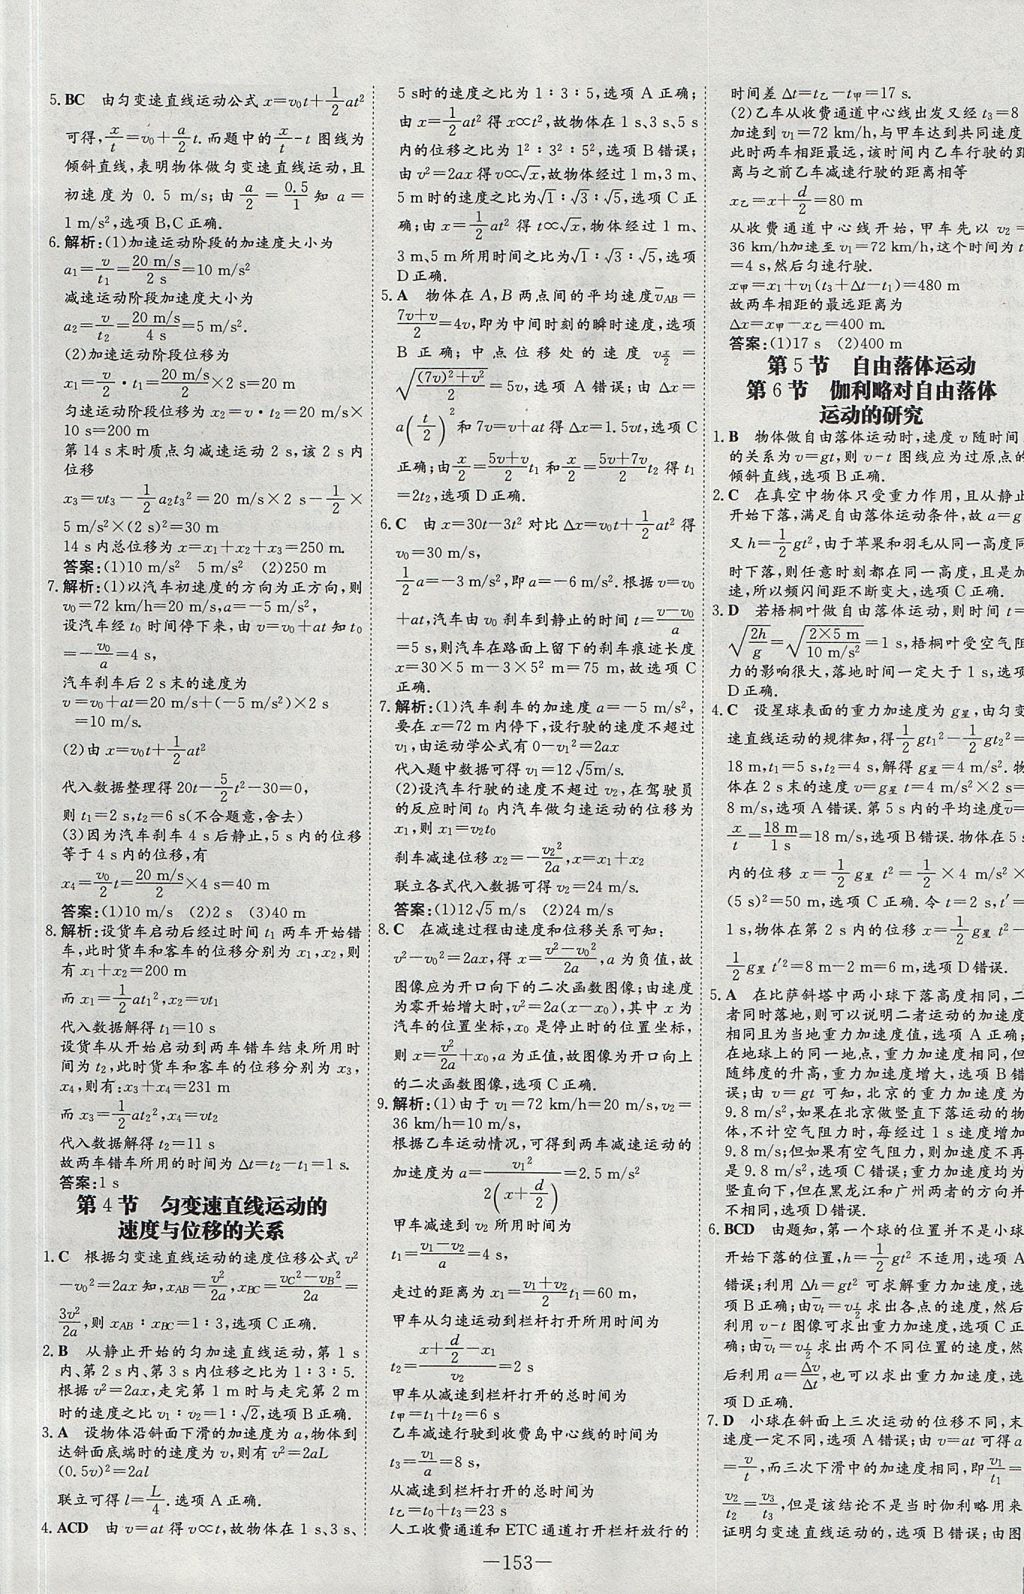 5. BC 由匀变速直线运动公式 x=v₀t+1/2at²
可得,x/t=v₀+a/2t. 而题中的x/t-t 图线为
倾斜直线,表明物体做匀变速直线运动,且
初速度为 0.5 m/s;由a/2=0.5/1知 a=
1 m/s²,选项B、C正确.
6. 解析:(1)加速运动阶段的加速度大小为
a₁=v/t₁=20 m/s/2 s=10 m/s²
减速运动阶段加速度大小为
a₂=v/t₂=20 m/s/4 s=5 m/s².
(2)加速运动阶段位移为
x₁=v/2·t₁=20 m/s/2×2 s=20 m
匀速运动阶段位移为 x₂=v·t₂=20 m/s×
10 s=200 m
第14 s末时质点匀减速运动2 s,该2 s内
位移
x₃=vt₃-1/2a₂t₃²=20 m/s×2 s-1/2×
5 m/s²×(2 s)²=30 m
14 s内总位移为 x=x₁+x₂+x₃=250 m.
答案:(1)10 m/s² 5 m/s² (2)250 m
7. 解析:(1)以汽车初速度的方向为正方向,则
v₀=72 km/h=20 m/s,a=-5 m/s²,
设汽车经 t₀ 时间停下来,由 v=v₀+at 知 t₀
=-v₀/a=4 s,
汽车刹车后2 s末的速度为
v=v₀+at=20 m/s+(-5 m/s²)×2 s
=10 m/s.
(2)由 x=v₀t+1/2at²
代入数据整理得20t-5/2t²-30=0,
则 t₁=2 s,t₂=6 s(不合题意,舍去)
(3)因为汽车刹车4 s后静止,5 s内的位移
等于4 s内的位移,有
x₄=v₀/2t=20 m/s/2×4 s=40 m
答案:(1)10 m/s (2)2 s (3)40 m
8. 解析:设货车启动后经过时间 t₁ 两车开始错
车,此时货车和客车的位移分别为 x₁,x₂,则
有 x₁+x₂=200 m
而 x₁=1/2at₁²,x₂=vt₁
代入数据解得 t₁=10 s
设货车从开始启动到两车错车结束所用时
间为 t₂,此时货车和客车的位移分别为 x₃,
x₄,则有:x₃+x₄=231 m
而 x₃=1/2at₂²,x₄=vt₂
代入数据解得 t₂=11 s
故两车错车所用的时间为 Δt=t₂-t₁=1 s.
答案:1 s
第4节 匀变速直线运动的
速度与位移的关系
1. C 根据匀变速直线运动的速度位移公式 v²
-v₀²=2ax 知,x_AB=v²/2a,x_BC=v_C²-v_B²/2a=
3v²/2a,则 x_AB∶x_BC=1∶3,选项C正确.
2. B 从静止开始的匀加速直线运动,第1 s
内、第2 s内、第3 s内位移之比为1∶3∶5.
根据 v²=2ax,走完第1 m时与走完第2 m
时的速度之比 v₁∶v₂=1∶√2,选项B正确.
3. A 设物体沿斜面下滑的加速度为a,物体到
达斜面底端时的速度为 v,则有 v²=2aL
(0.5v)²=2al
联立可得 l=L/4. 选项A正确.
4. ACD 由 v=at 得 v∝t,故物体在1 s、3 s、
5 s时的速度之比为1∶3∶5,选项A正确;
由 x=1/2at² 得 x∝t²,故物体在1 s、3 s、5 s
内的位移之比为1²∶3²∶5²,选项B错误;
由 v²=2ax 得 v∝√x,故物体经过1 m、3 m、
5 m时的速度之比为√1∶√3∶√5,选项C正
确;由 x=1/2at² 得 t∝√x,物体经过1 m、
3 m、5 m所用时间之比为√1∶√3∶√5,选项
D正确.
5. A 物体在A、B两点间的平均速度v̄_AB=
7v+v/2=4v,即为中间时刻的瞬时速度,选项
B正确;中点位移处的速度 v_x/2=
√((7v)²+v²/2)=5v,选项A错误;由 Δx=
a(t/2)²和7v=v+at得Δx=1.5vt,选项C
正确;由x/2=5v+v/2t₁和x/2=5v+7v/2t₂得 t₁
=2t₂,选项D正确.
6. C 由 x=30t-3t² 对比 Δx=v₀t+1/2at² 得
v₀=30 m/s,
1/2a=-3 m/s²,即a=-6 m/s². 根据 v=v₀
+at,汽车由 v₀ 刹车到静止的时间 t=v-v₀/a
=5 s,则汽车在路面上留下的刹车痕迹长度
x=30×5 m-3×5² m=75 m,故选项C
正确.
7. 解析:(1)汽车刹车的加速度 a=-5 m/s²,
要在 x=72 m内停下,设行驶的速度不超过
v₁,由运动学公式有0-v₁²=2ax
代入题中数据可得 v₁=12√5m/s.
(2)设汽车行驶的速度不超过 v₂,在驾驶员
的反应时间 t₀ 内汽车做匀速运动的位移为
x₁,则 x₁=v₂t₀
刹车减速位移 x₂=-v₂²/2a,x=x₁+x₂
联立各式代入数据可得 v₂=24 m/s.
答案:(1)12√5 m/s (2)24 m/s
8. C 在减速过程由速度和位移关系可知:
v²-v₀²=2ax,得 x=v²-v₀²/2a,a为负值,故
图像应为开口向下的二次函数图像;由速度
为零开始增大时,v²=2a(x-x₀),其中 x 为
汽车的位置坐标,x₀ 是停止时的位置坐标,
则 x=v²/2a+x₀,a为正值,故图像为开口向上
的二次函数图像,选项C正确.
9. 解析:(1)由于 v₁=72 km/h=20 m/s,v₂=
36 km/h=10 m/s,
根据乙车运动情况,可得到两车减速运动的
加速度为 a=v₁²/2(x+d/2)=2.5 m/s²
甲车减速到 v₂ 所用时间为
t₁=v₁-v₂/a=4 s,
走过的距离为 x₁=v₁+v₂/2t₁=60 m,
甲车从匀速运动到栏杆打开所用时间为
t₂=x+d/2-x₁/v₂=2 s
甲车从减速到栏杆打开的总时间为
t甲=t₁+t₂=6 s
乙车减速行驶到收费岛中心线的时间为
t₃=v₁/a=8 s,
从减速到栏杆打开的总时间为
t乙=t₀+t₃=23 s
人工收费通道和ETC通道打开栏杆放行的
时间差 Δt=t乙-t甲=17 s.
(2)乙车从收费通道中心线出发又经 t₃=8
加速到 v₁=72 km/h,与甲车达到共同速度
此时两车相距最远,该时间内乙车行驶的距
离与之前乙车减速行驶的距离相等
x乙=x+d/2=80 m
从收费通道中心线开始,甲车先以 v₂=
36 km/h加速至 v₁=72 km/h,这个时间为 t
=4 s,然后匀速行驶.
x甲=x₁+v₁(t₃+Δt-t₁)=480 m
故两车相距的最远距离为
Δx=x甲-x乙=400 m.
答案:(1)17 s (2)400 m
第5节 自由落体运动
第6节 伽利略对自由落体
运动的研究
1. B 物体做自由落体运动时,速度 v 随时间
的关系为 v=gt,则 v-t 图线应为过原点的
倾斜直线,选项B正确.
2. C 在真空中物体只受重力作用,且从静止
开始下落,满足自由落体运动条件,故 a=g
又 h=1/2gt²,由于苹果和羽毛从同一高度同
时下落,则任意时刻都在同一高度,且是加
速,所以频闪间距不断变大,选项C正确.
3. D 若梧桐叶做自由落体运动,则时间 t=
√(2h/g)=√(2×5 m/10 m/s²)=1 s,梧桐叶受空气阻
力的影响很大,落地时间一定大于1 s,选项
D正确.
4. C 设星球表面的重力加速度为 g星,由匀变
速直线运动的规律知,得1/2gt₁²-1/2gt₂²=
18 m,t₁=5 s,t₂=4 s,解得 g星=4 m/s². 物
体在2 s末的速度为 v=g星 t=4 m/s²×2 s=
8 m/s,选项A错误. 第5 s内的平均速度v̄=
x/t=18 m/1 s=18 m/s,选项B错误. 物体在5 s
内的位移 x=1/2g星 t²=1/2×4 m/s²×
(5 s)²=50 m,选项C正确. 令 t=2 s,t′=
1 s,物体在第2 s内的位移 x=1/2g星 t²-
1/2g星 t′²=8 m-2 m=6 m,选项D错误.
5. A 在比萨斜塔中两小球下落高度相同,二
者同时落地,则可以说明二者运动的加速度
相同且为当地重力加速度值,选项A正确;
在地球上的同一地点,重力加速度相同,但
随纬度的升高,重力加速度增大,选项B错
误;由 v=gt 可知,北京的重力加速度为
9.8 m/s²,如果在北京做竖直下落运动的物
体,不计空气阻力时,每经过1 s速度增加
9.8 m/s;但如果有空气阻力,则加速度不再
是9.8 m/s²,选项C错误;重力加速度均为
竖直向下,但在黑龙江和广州两者的方向并
不相同,选项D错误.
6. BCD 由题知,第一个球的位置并不是小球
开始下落的位置,h=1/2gt² 不适用,选项A
错误;利用 Δh=gt² 可求解重力加速度,选
项B正确;由v̄_t=v_t/2求出各点的速度,然后
利用 v-t 图像可求出重力加速度,选项C正
确;由v̄_t=v_t/2求出两个不同位置的速度,然
后利用 a=Δv/Δt,也可以求出重力加速度,选
项D正确.
7. D 小球在斜面上三次运动的位移不同,末
速度一定不同,选项A错误;由 v=at 可得 a
=v/t,而三次下滑中的加速度相同,即v₁/t₁=
v₂/t₂=v₃/t₃,但是该结论不是当时伽利略用来
证明匀变速直线运动的,选项B错误;由图
—153—